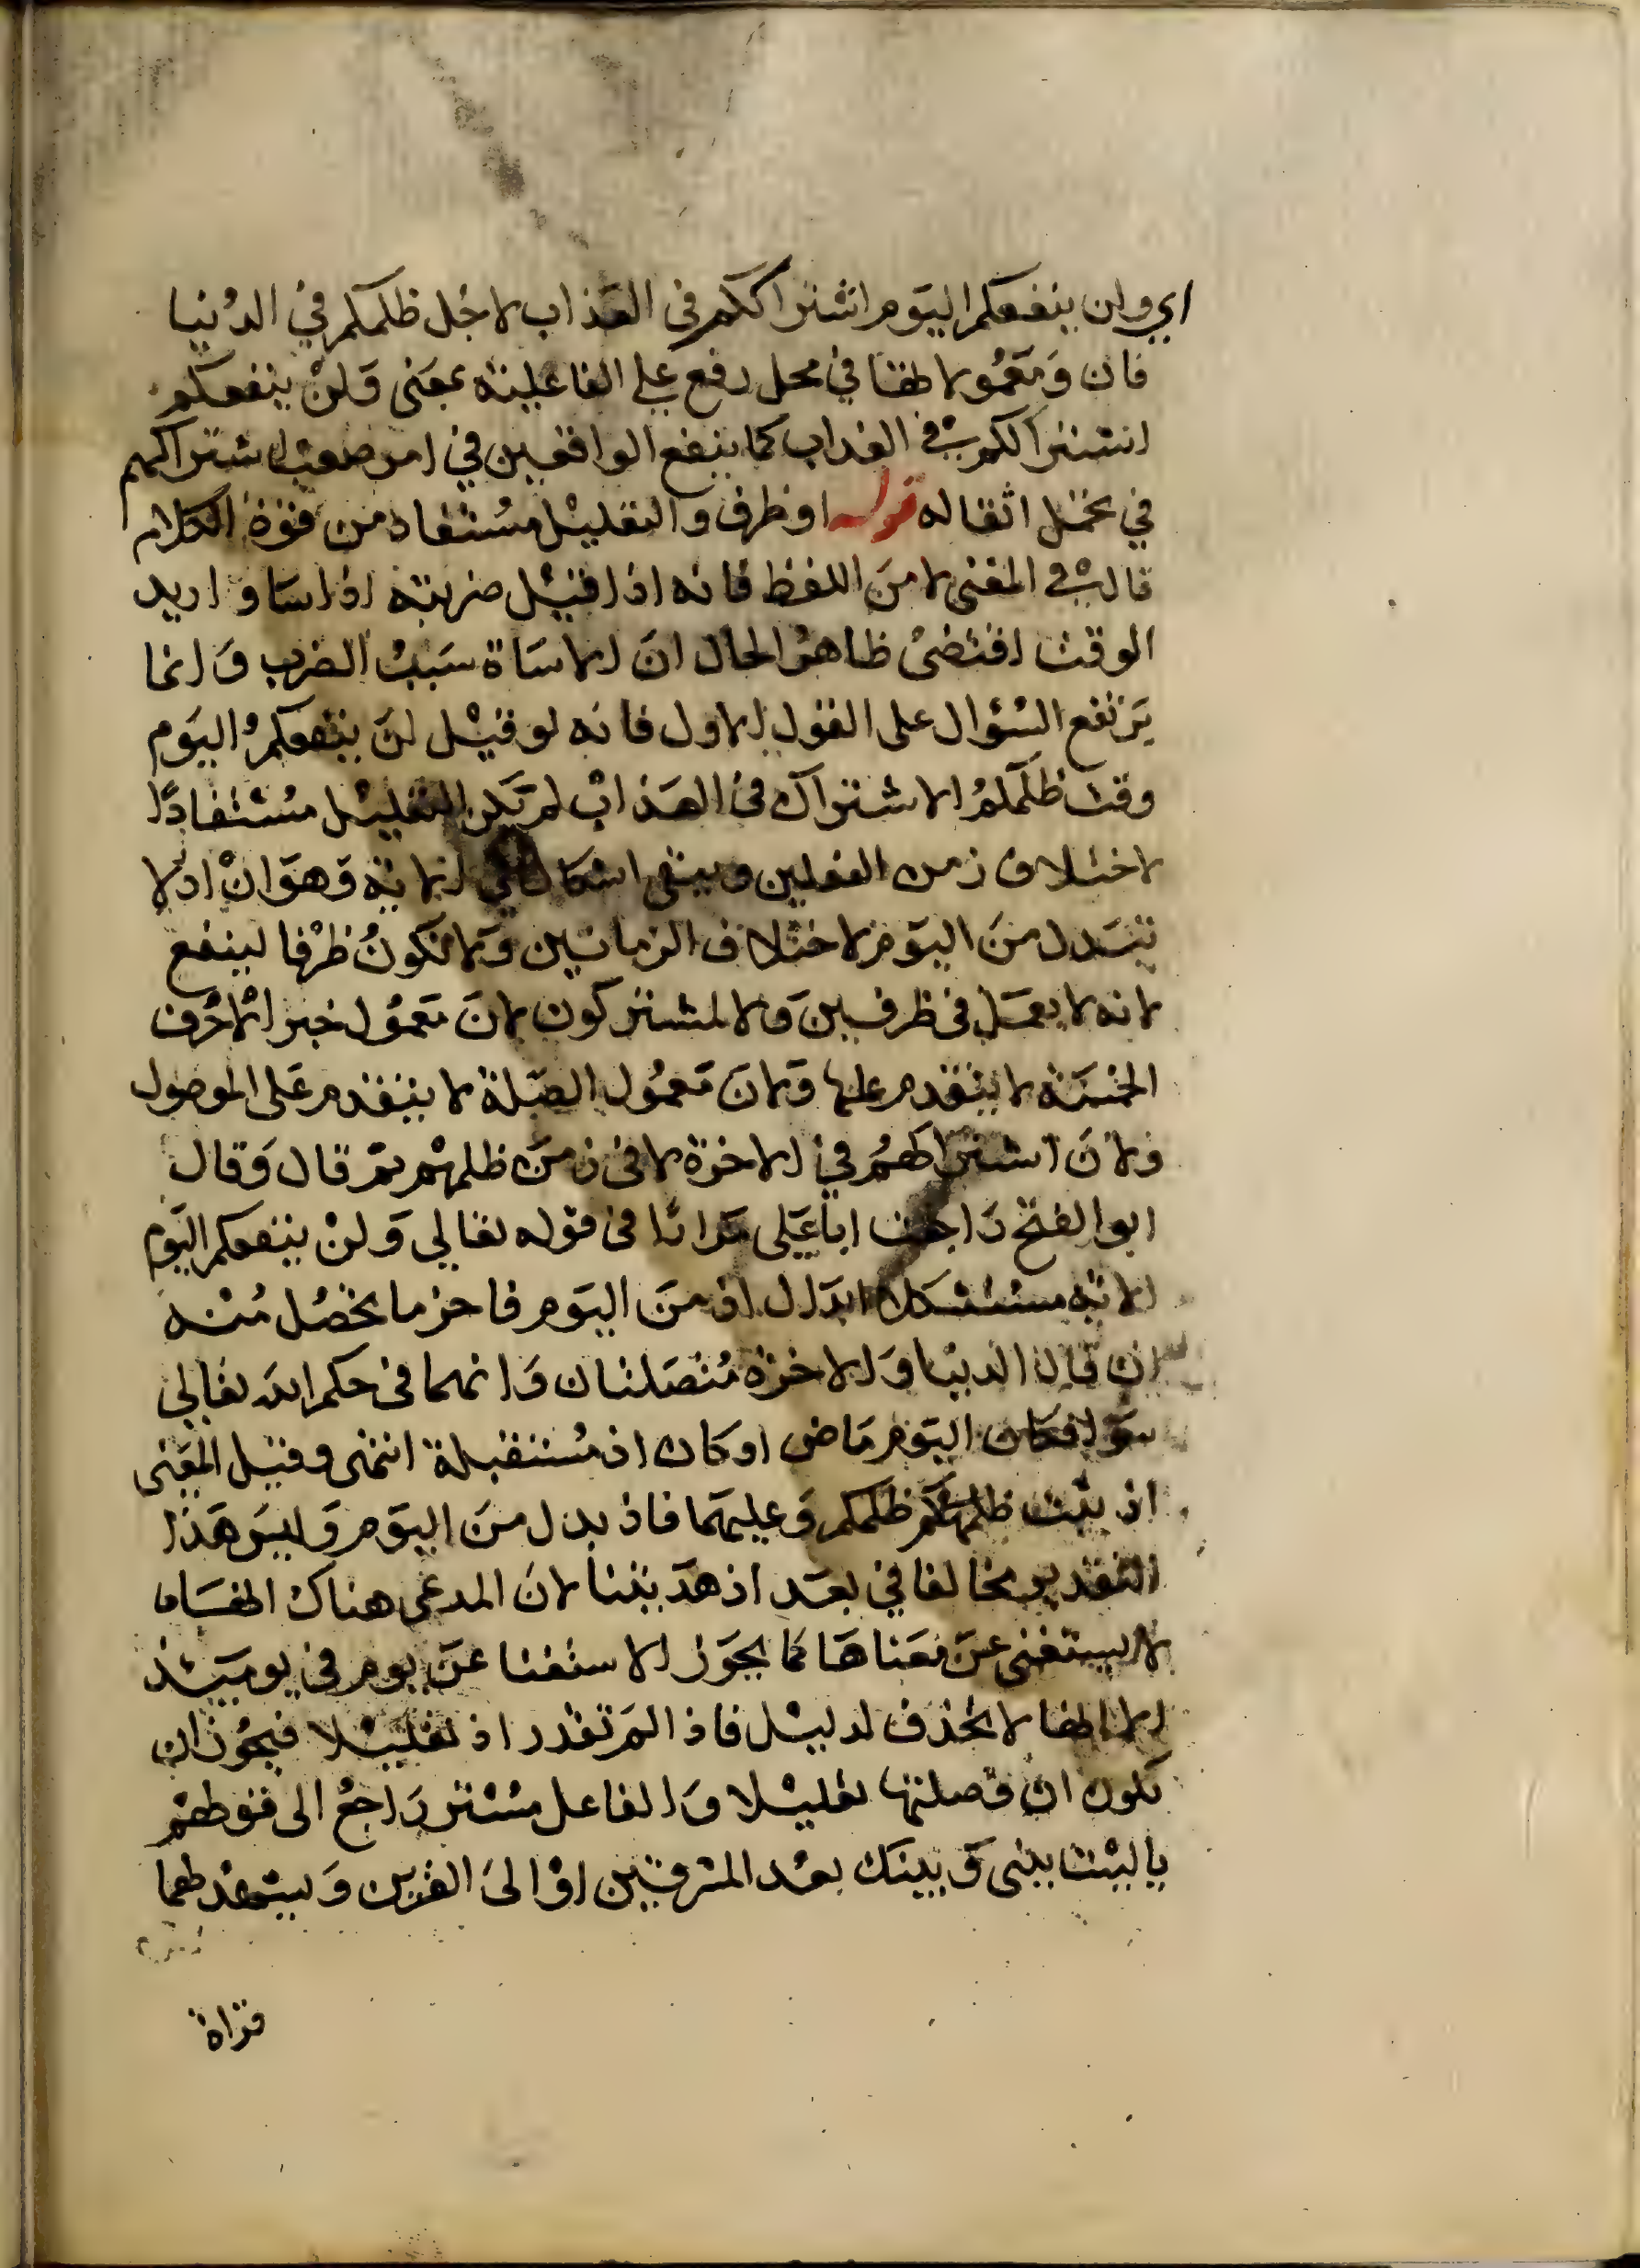 اي ولن ينفعكم اليوم اشتراككم في العذاب لاجل ظلمكم في الدنيا
فان ومعمولاها في محل رفع علي الفاعلية بمعنى ولن ينفعكم
اشتراككم في العذاب كما ينفع الواقعين في امر صعب اشتراكهم
في تحمل اثقاله قوله او ظرف والتعليل مستفاد من قوة الكلام
قال في المغنى لا من اللفظ فانه اذا قيل ضربته اذ اسا واريد
الوقت اقتضى ظاهر الحال ان الاساة سبب الضرب وانما
يرتفع السؤال على القول الاول فانه لو قيل لن ينفعكم اليوم
وقت ظلمكم الاشتراك في العذاب لم يكن التعليل مستفادا
لاختلاف زمن الفعلين ويبقى اشكال في الاية وهو ان اذ لا
تبدل من اليوم لاختلاف الزمانين ولا تكون ظرفا لينفع
لانه لا يعمل في ظرفين ولا لمشتركون لان معمول خبر الاحرف
الخمسة لا يتقدم عليها ولان معمول الصلة لا يتقدم على الموصول
ولان اشتراكهم في الاخرة لا في زمن ظلمهم ثم قال وقال
ابو الفتح راجعت ابا على مرارا في قوله تعالي ولن ينفعكم اليوم
الاية مستشكلا ابدال اذ من اليوم فاخر ما يحصل منه
ان قال الدنيا والاخرة متصلتان وانهما في حكم الله تعالي
سوا فكان اليوم ماض او كان اذ مستقبلة انتهى وقيل المعنى
اذ ثبت ظلمكم وعليهما فاذ بدل من اليوم وليس هذا
التقدير مخالفا في بعد اذ هديتنا لان المدعى هناك انها
لا يستغنى عن معناها كما يجوز الاستغنا عن يوم في يوميذ
لا انها لا تحذف لدليل فاذا لم تقدر اذ تعليلا فيجوز ان
تكون ان وصلتها تعليلا والفاعل مستتر راجع الى قولهم
ياليت بيني وبينك بعد المشرقين او الى القرين ويشهد لهما
قراة